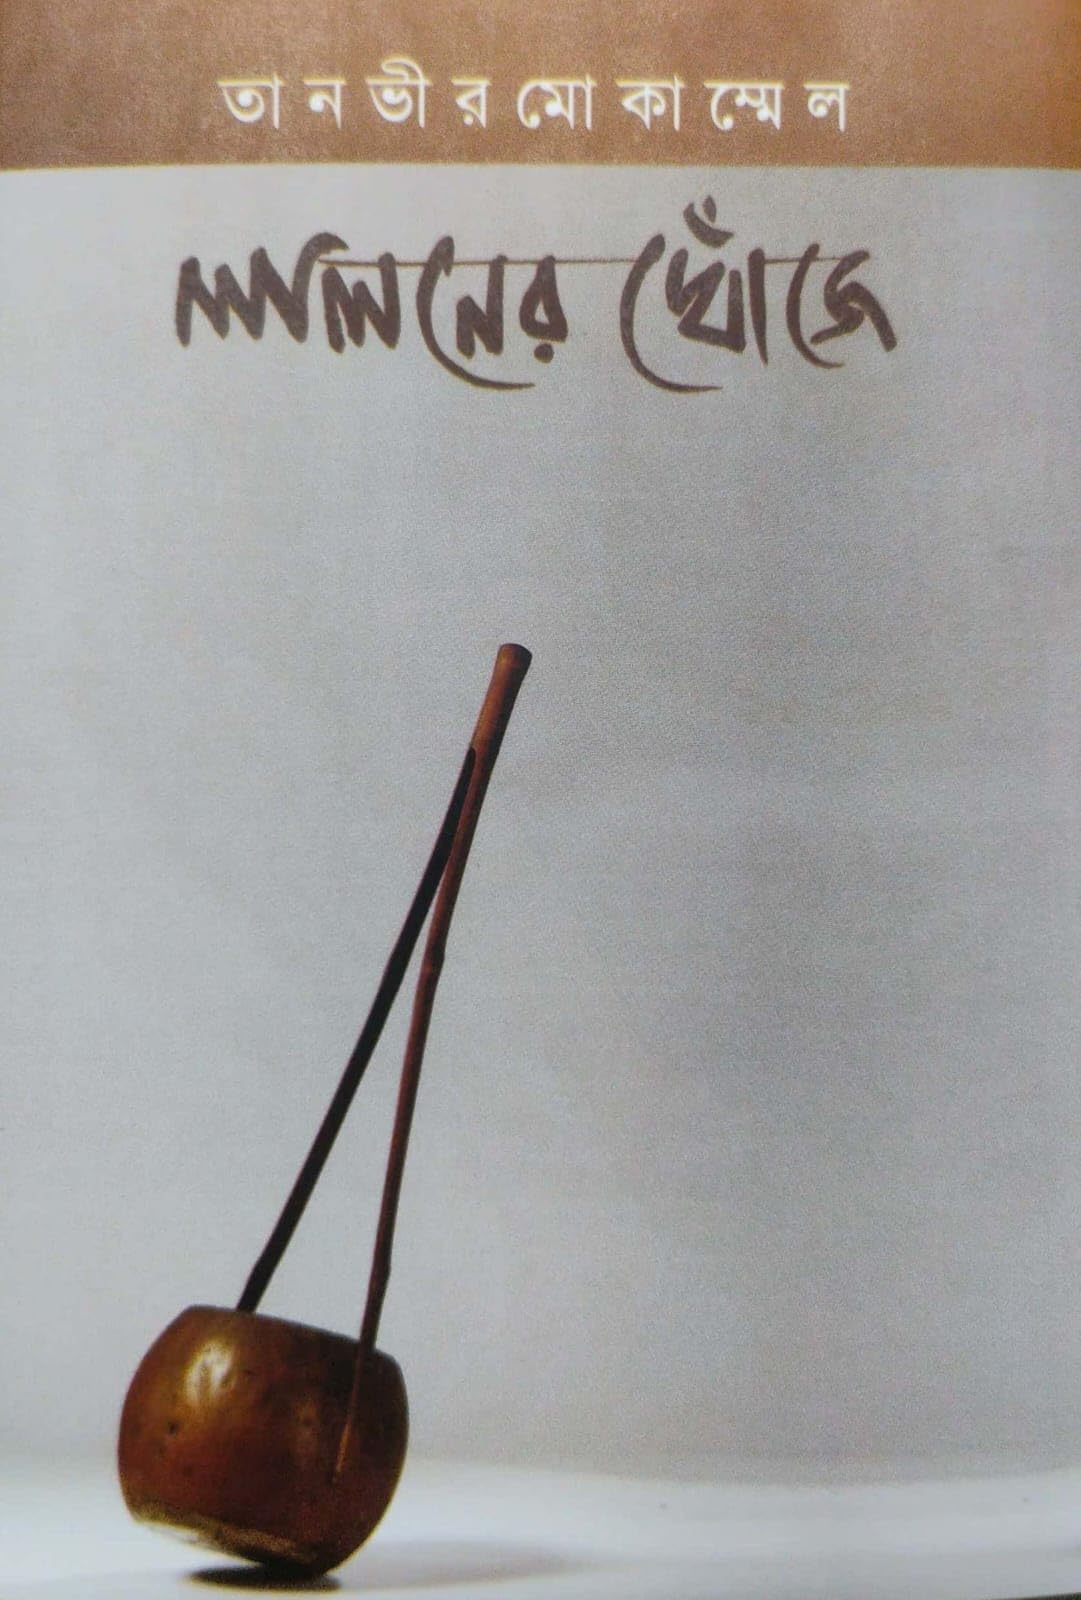 তানভীর মোকাম্মেল
লালনের খোঁজে